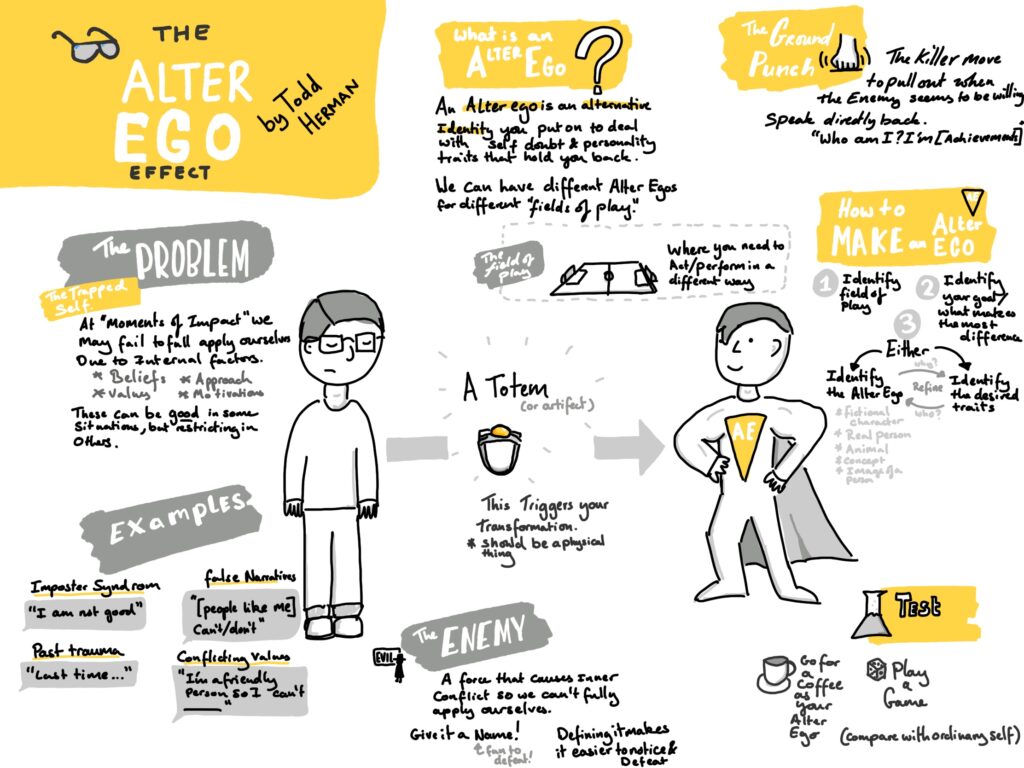 THE
ALTER
EGO
EFFECT
by Todd
HERMAN
What is an
ALTER EGO
?
An Alter ego is an alternative
Identity you put on to deal
with self doubt & personality
traits that hold you back.
We can have different Alter Egos
for different "fields of play."
The Ground
Punch
The Killer move
to pull out when
the Enemy seems to be willing
Speak directly back.
"Who am I? I'm [Achievements]
The
PROBLEM
The Trapped
Self
At "Moments of Impact" we
May fail to full apply ourselves
Due to Internal factors.
* Beliefs * Approach
* Values * Motivations
These can be good in some
Situations, but restricting in
Others.
The field of
play
Where you need to
Act/perform in a
different way
How to
MAKE an Alter
EGO
AE
1 Identify
field of
Play
2 Identify
your goal/
what makes
the most
difference
3
Either
Identify
the Alter Ego
why?
Refine
who?
Identify
the desired
traits
* Fictional
character
* Real person
* Animal
* Concept
* Image of a
Person
A Totem
(or artifact)
This Triggers your
Transformation.
* Should be a physical
thing
AE
Examples
Imposter Syndrom
"I am not good"
false Narratives
"[people like me]
Can't/don't"
Past trauma
"Last time..."
Conflicting Values
"I'm a friendly
Person so I can't
____"
The
ENEMY
EVIL
A force that causes Inner
Conflict so we can't fully
apply ourselves.
Give it a Name!
fun to
defeat!
Defining it makes
it easier to notice &
Defeat
Test
Go for
a
Coffee
as
your
Alter
Ego
Play
a
Game
(compare with ordinary self)